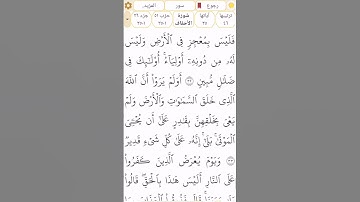 رجوع سور المزيد..
ترتيبها آياتها سورة حزب ٥١ جزء ٢٦
٤٦ ٣٥ الأحقاف
فَلَيْسَ بِمُعْجِزٍ فِى ٱلْأَرْضِ وَلَيْسَ
لَهُۥ مِن دُونِهِۦٓ أَوْلِيَآءُ ۚ أُو۟لَـٰٓئِكَ فِى
ضَلَـٰلٍ مُّبِينٍ ٣٢ أَوَلَمْ يَرَوْا۟ أَنَّ ٱللَّهَ
ٱلَّذِى خَلَقَ ٱلسَّمَـٰوَٰتِ وَٱلْأَرْضَ وَلَمْ
يَعْىَ بِخَلْقِهِنَّ بِقَـٰدِرٍ عَلَىٰٓ أَن يُحْـِۧىَ
ٱلْمَوْتَىٰ ۚ بَلَىٰٓ إِنَّهُۥ عَلَىٰ كُلِّ شَىْءٍ قَدِيرٌ
٣٣ وَيَوْمَ يُعْرَضُ ٱلَّذِينَ كَفَرُوا۟
عَلَى ٱلنَّارِ أَلَيْسَ هَـٰذَا بِٱلْحَقِّ ۖ قَالُوا۟